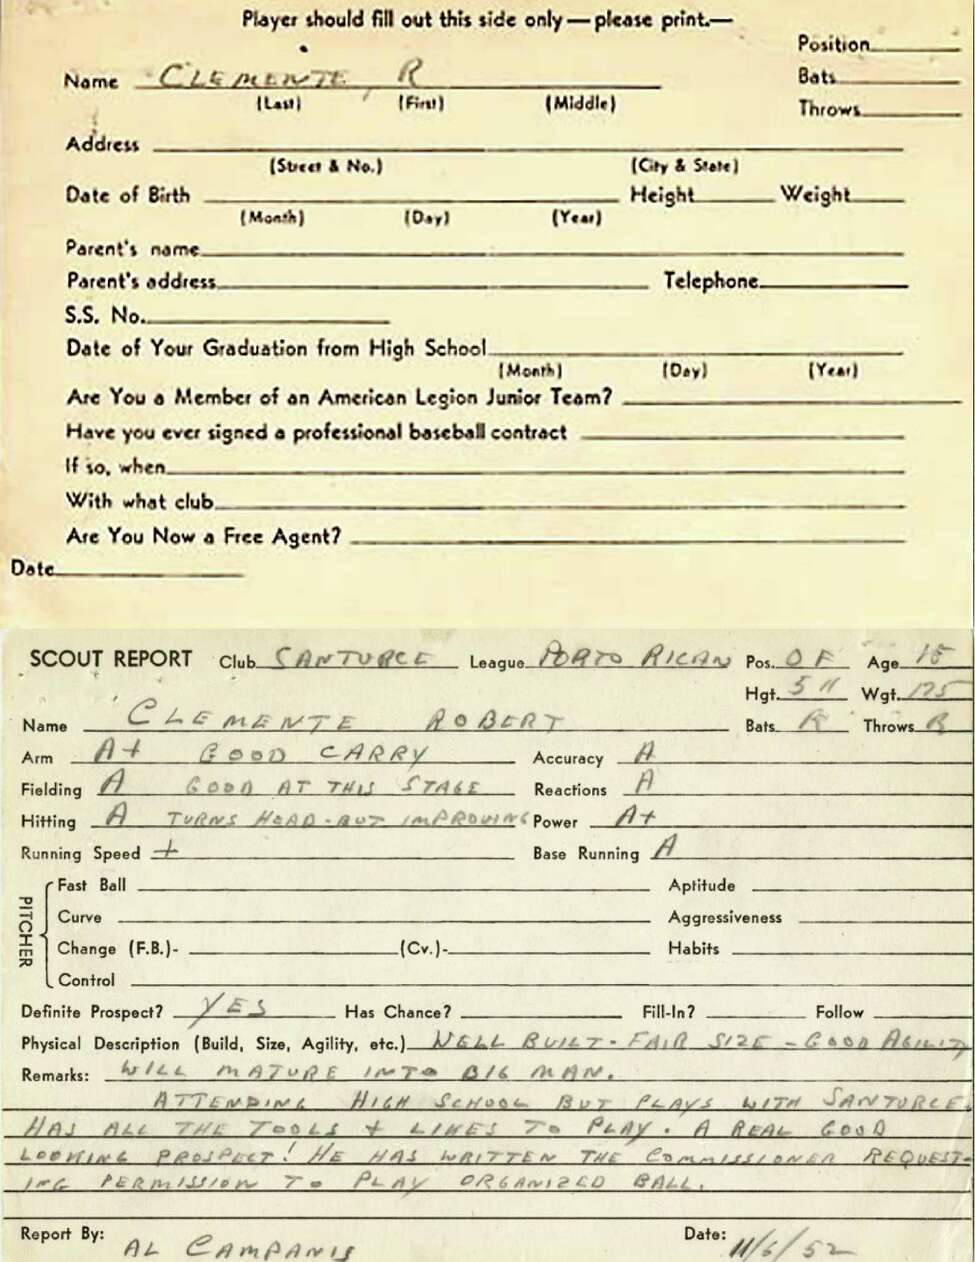 Player should fill out this side only — please print.—
Position
Name CLEMENTE, R
Bats
(Last) (First) (Middle)
Throws
Address
(Street & No.) (City & State)
Date of Birth Height Weight
(Month) (Day) (Year)
Parent's name
Parent's address Telephone
S.S. No.
Date of Your Graduation from High School
(Month) (Day) (Year)
Are You a Member of an American Legion Junior Team?
Have you ever signed a professional baseball contract
If so, when
With what club
Are You Now a Free Agent?
Date
SCOUT REPORT Club SANTURCE League PORTO RICAN Pos. OF Age 18
Hgt. 5 11 Wgt. 175
Name CLEMENTE ROBERT Bats R Throws R
Arm A+ GOOD CARRY Accuracy A
Fielding A GOOD AT THIS STAGE Reactions A
Hitting A TURNS HEAD - BUT IMPROVING Power A+
Running Speed + Base Running A
PITCHER
Fast Ball Aptitude
Curve Aggressiveness
Change (F.B.)- (Cv.)- Habits
Control
Definite Prospect? YES Has Chance? Fill-In? Follow
Physical Description (Build, Size, Agility, etc.) WELL BUILT - FAIR SIZE - GOOD AGILITY
Remarks: WILL MATURE INTO BIG MAN.
ATTENDING HIGH SCHOOL BUT PLAYS WITH SANTURCE.
HAS ALL THE TOOLS + LIKES TO PLAY. A REAL GOOD
LOOKING PROSPECT! HE HAS WRITTEN THE COMMISSIONER REQUEST-
ING PERMISSION TO PLAY ORGANIZED BALL.
Report By: AL CAMPANIS Date: 11/6/52